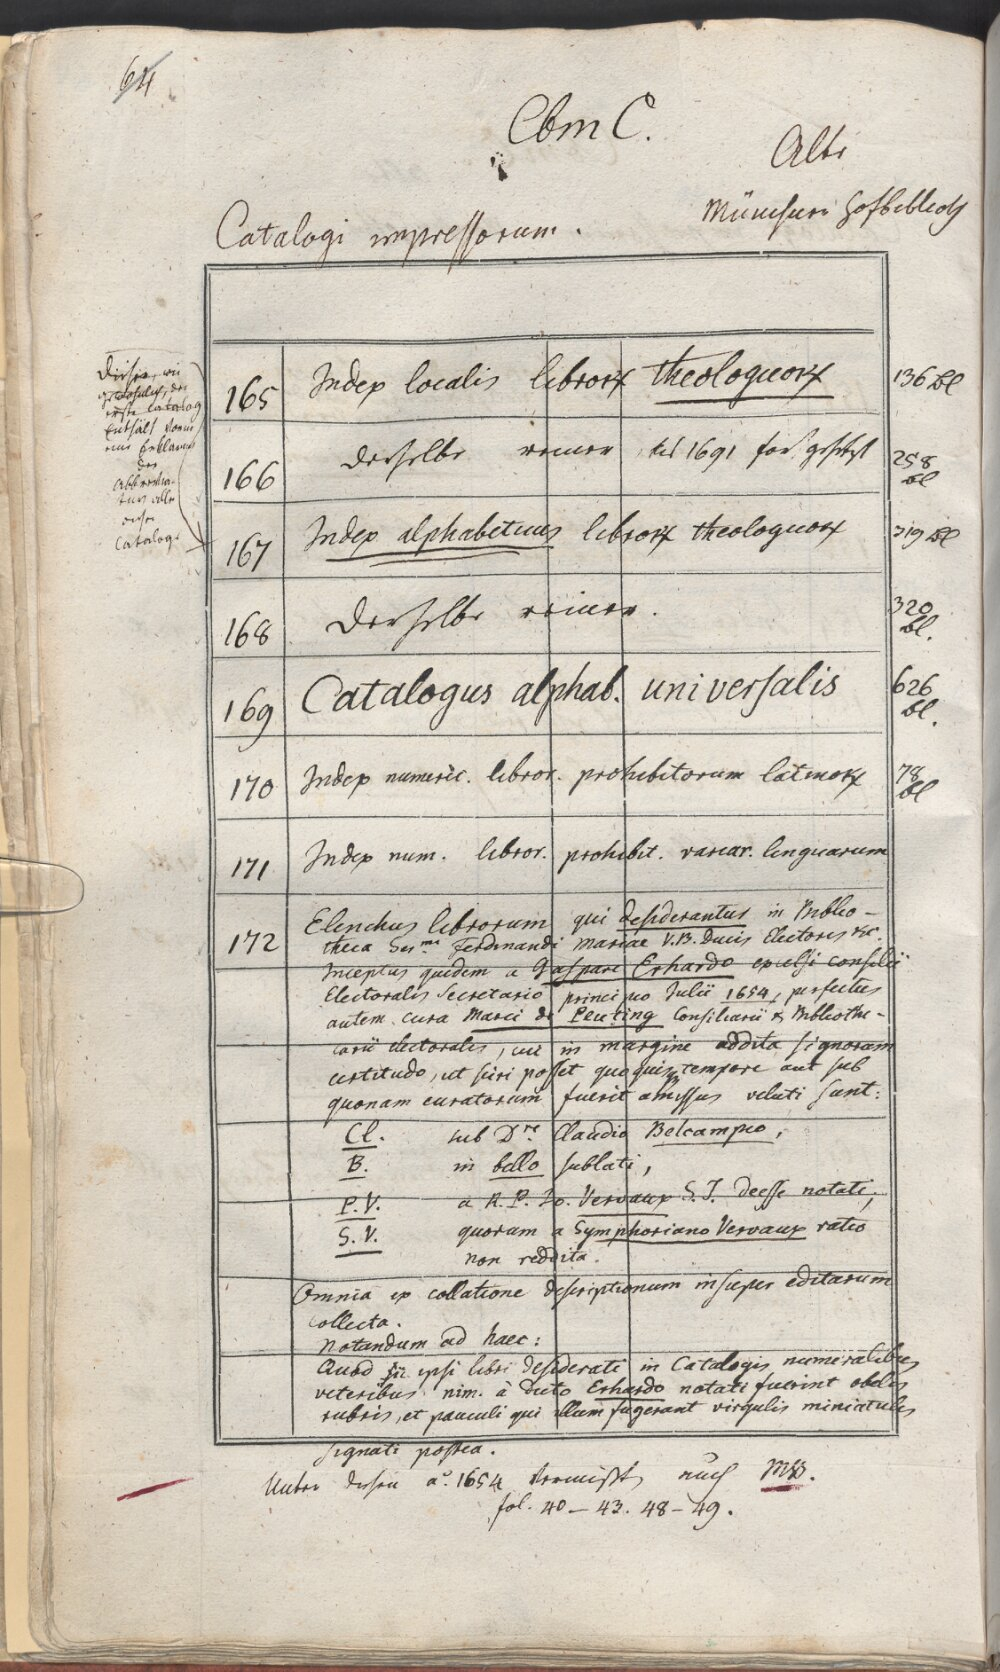 64
Cbm C.
Alte
Münchner Hofbiblioth
Catalogi impressorum.
Dieser, wie
der
erste Catalog
Enthält vorne
eine Erklärung
der
Abbrevia-
turen aller
dieser
Cataloge
165 Index localis librorx theologicorx 136 Bl
166 Derselbe reiner, bis 1691 fortgesetzt 258 Bl
167 Index alphabeticus librorx theologicorx 319 Bl
168 Derselbe reiner. 320 Bl.
169 Catalogus alphab. universalis 626 Bl.
170 Index numeric. libror. prohibitorum latinorx 78 Bl
171 Index num. libror. prohibit. variar. linguarum
172 Elenchus librorum qui desiderantur in Biblio-
theca Ser.mi Ferdinandi Mariae V.B. Ducis Electoris &c.
Inceptus quidem a Gaspare Erhardo excelsi consilii
Electoralis Secretario principio Julii 1654, perfectus
autem cura Marci de Peuting Consiliarii & Bibliothe-
carii electoralis, cui in margine addita signorum
certitudo, ut sciri posset quoquis tempore aut sub
quonam curatorum fuerit amissus veluti sunt:
Cl. sub D.no Claudio Belcampio,
B. in bello sublati,
P.V. a R.P. Jo. Vervaux S.J. deesse notati,
S.V. quorum a Symphoriano Vervaux ratio
non reddita.
Omnia ex collatione descriptionum insuper editarum
collecta.
Notandum ad haec:
Quod sic ipsi libri desiderati in Catalogis numeralibus
veteribus nim. à dicto Erhardo notati fuerint obelis
rubris, et pauculi qui illum fugerant virgulis miniatulis
signati postea.
Unter diesen a.o 1654 vermißt, auch MSS.
fol. 40-43. 48-49.